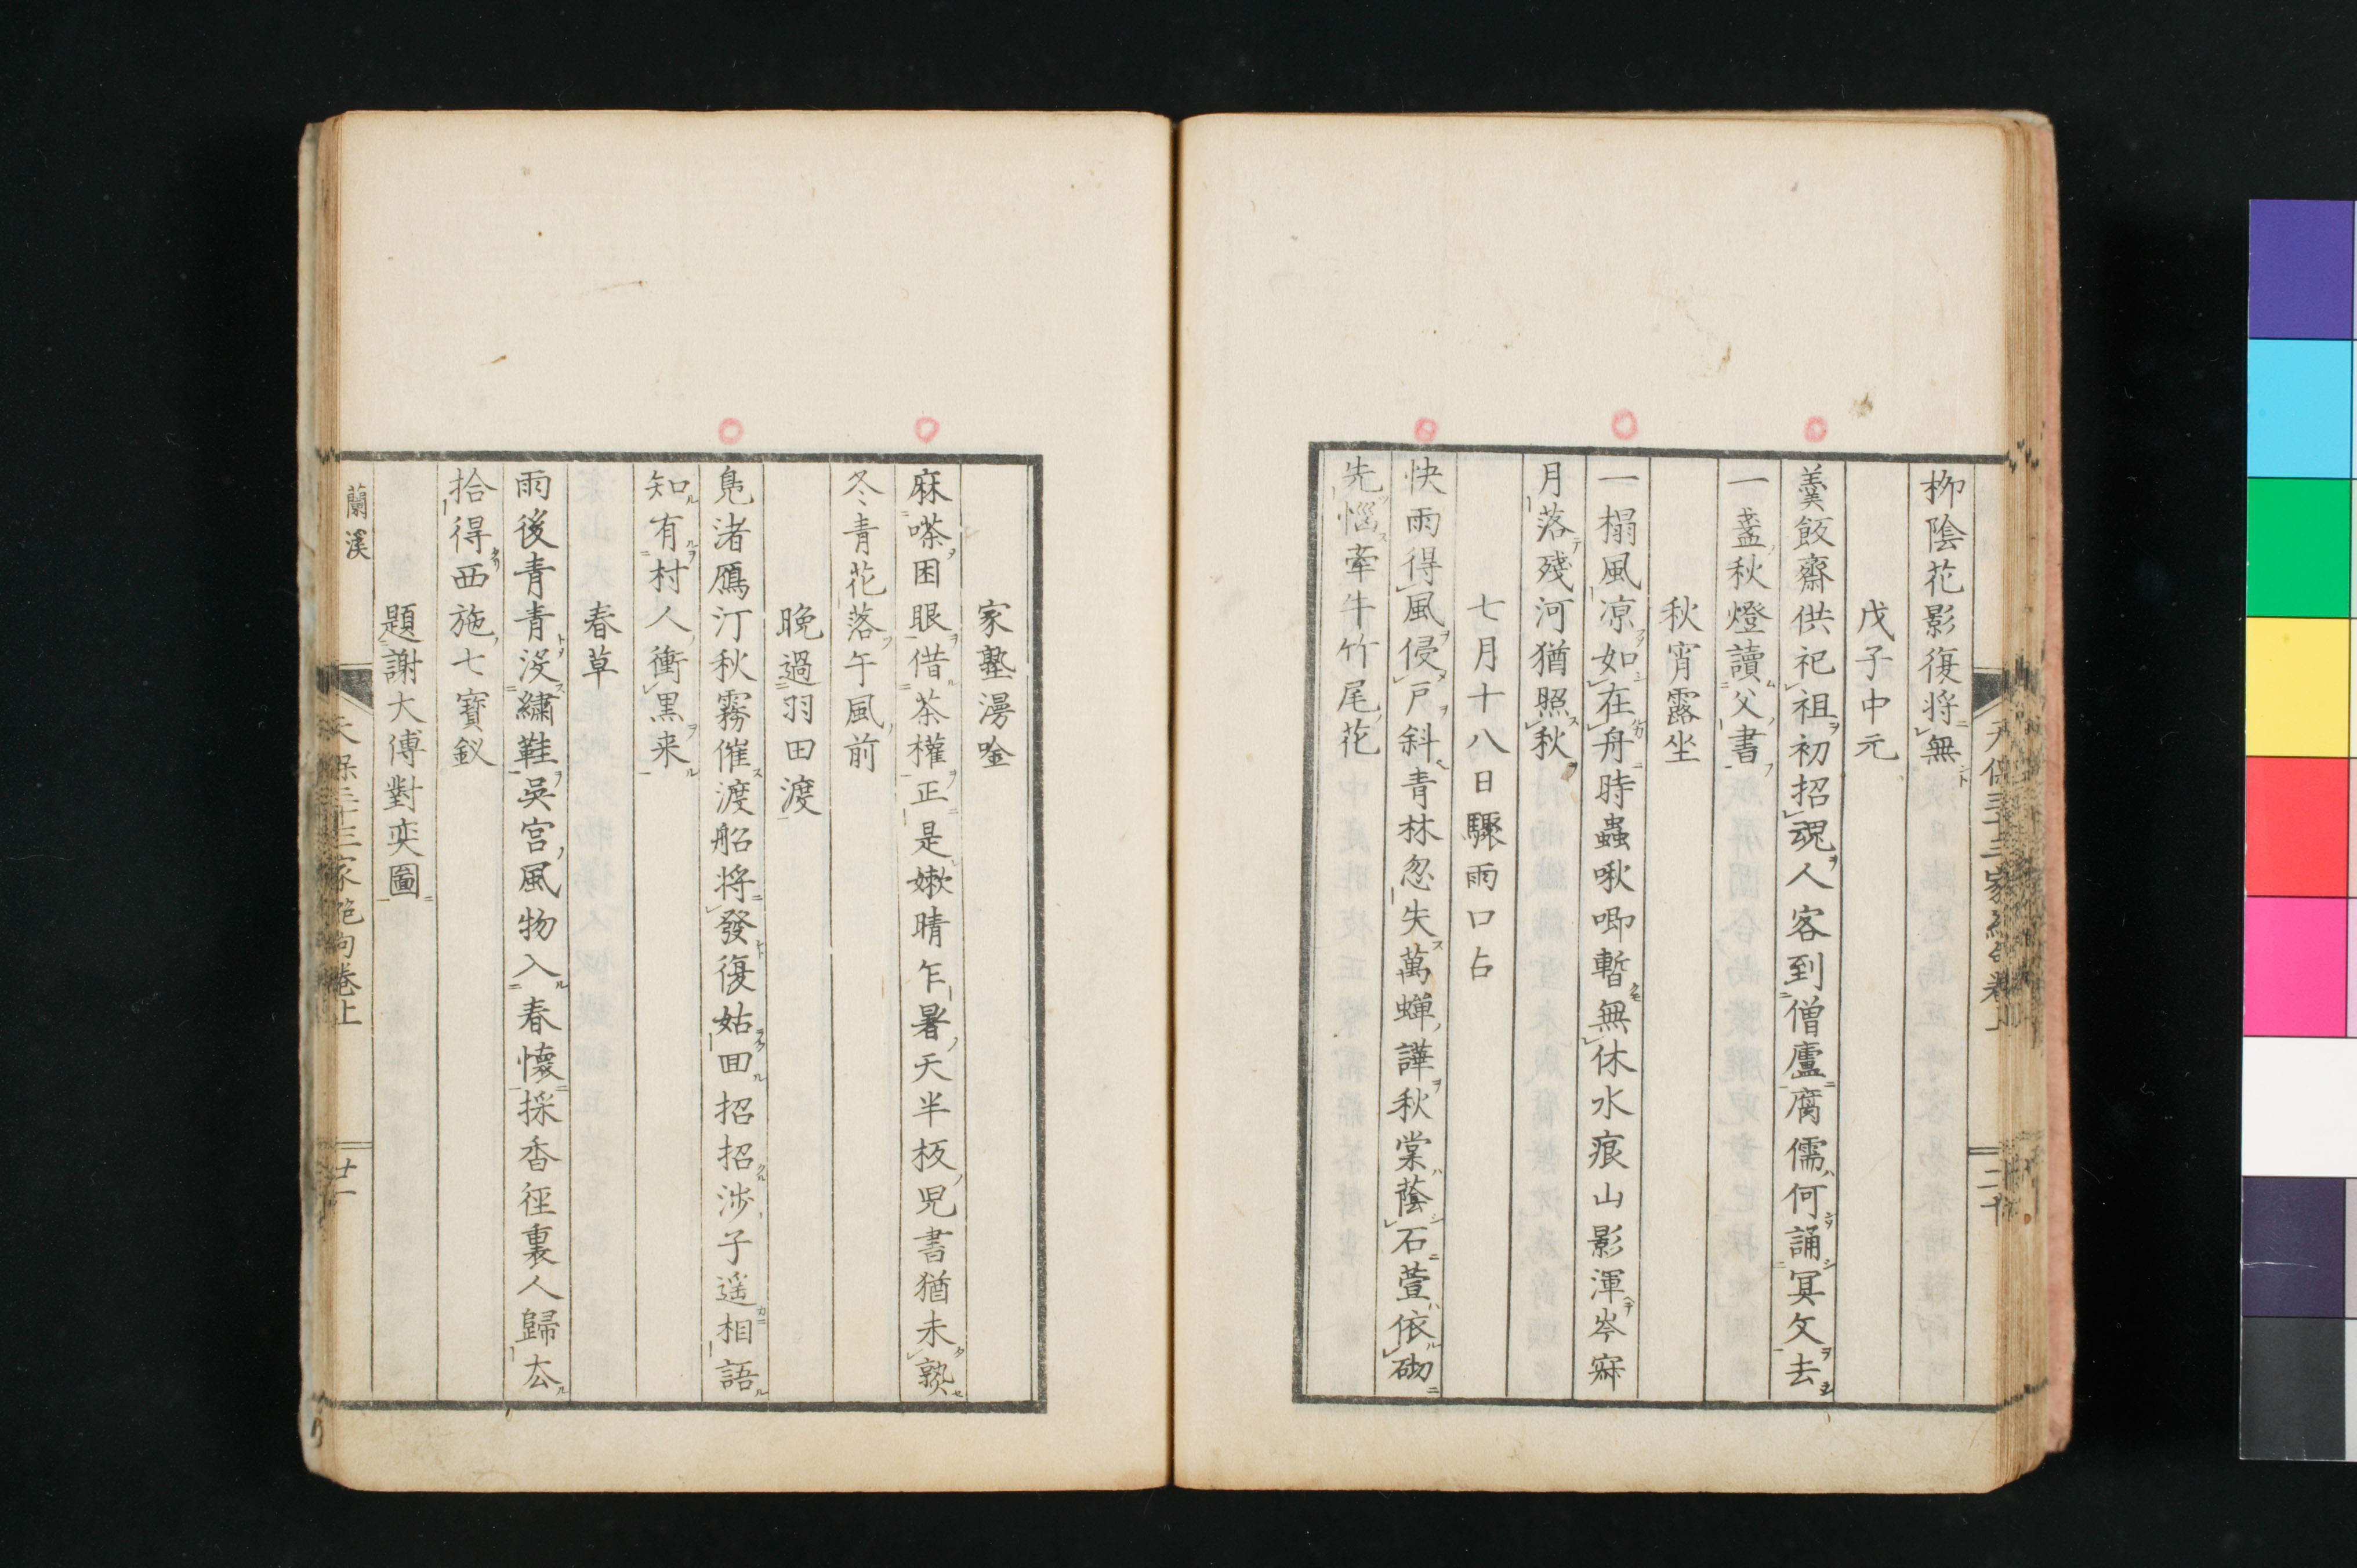 柳陰花影復將無
戊子中元
羹飯齋供祀祖初招魂人客到僧廬腐儒何誦冥文去
一盞秋燈讀父書
秋宵露坐
一榻風凉如在舟時蟲啾喞暫無休水痕山影渾岑寂
月落殘河猶照秋
七月十八日驟雨口占
快雨得風侵戸斜青林忽失萬蟬譁秋棠蔭石萱依砌
先惱牽牛竹尾花
家塾漫唫
麻嗏困眼借茶權正是嫩晴乍暑天半板児書猶未熟
冬青花落午風前
晩過羽田渡
鳬渚鴈汀秋霧催渡船將發復姑回招招渉子遥相語
知有村人衝黒来
春草
雨後青青没繡鞋吳宮風物入春懷採香徑裏人歸厺
拾得西施七寶釵
題謝大傅對奕圖
蘭溪
天保三十三家絶句卷上
廿一